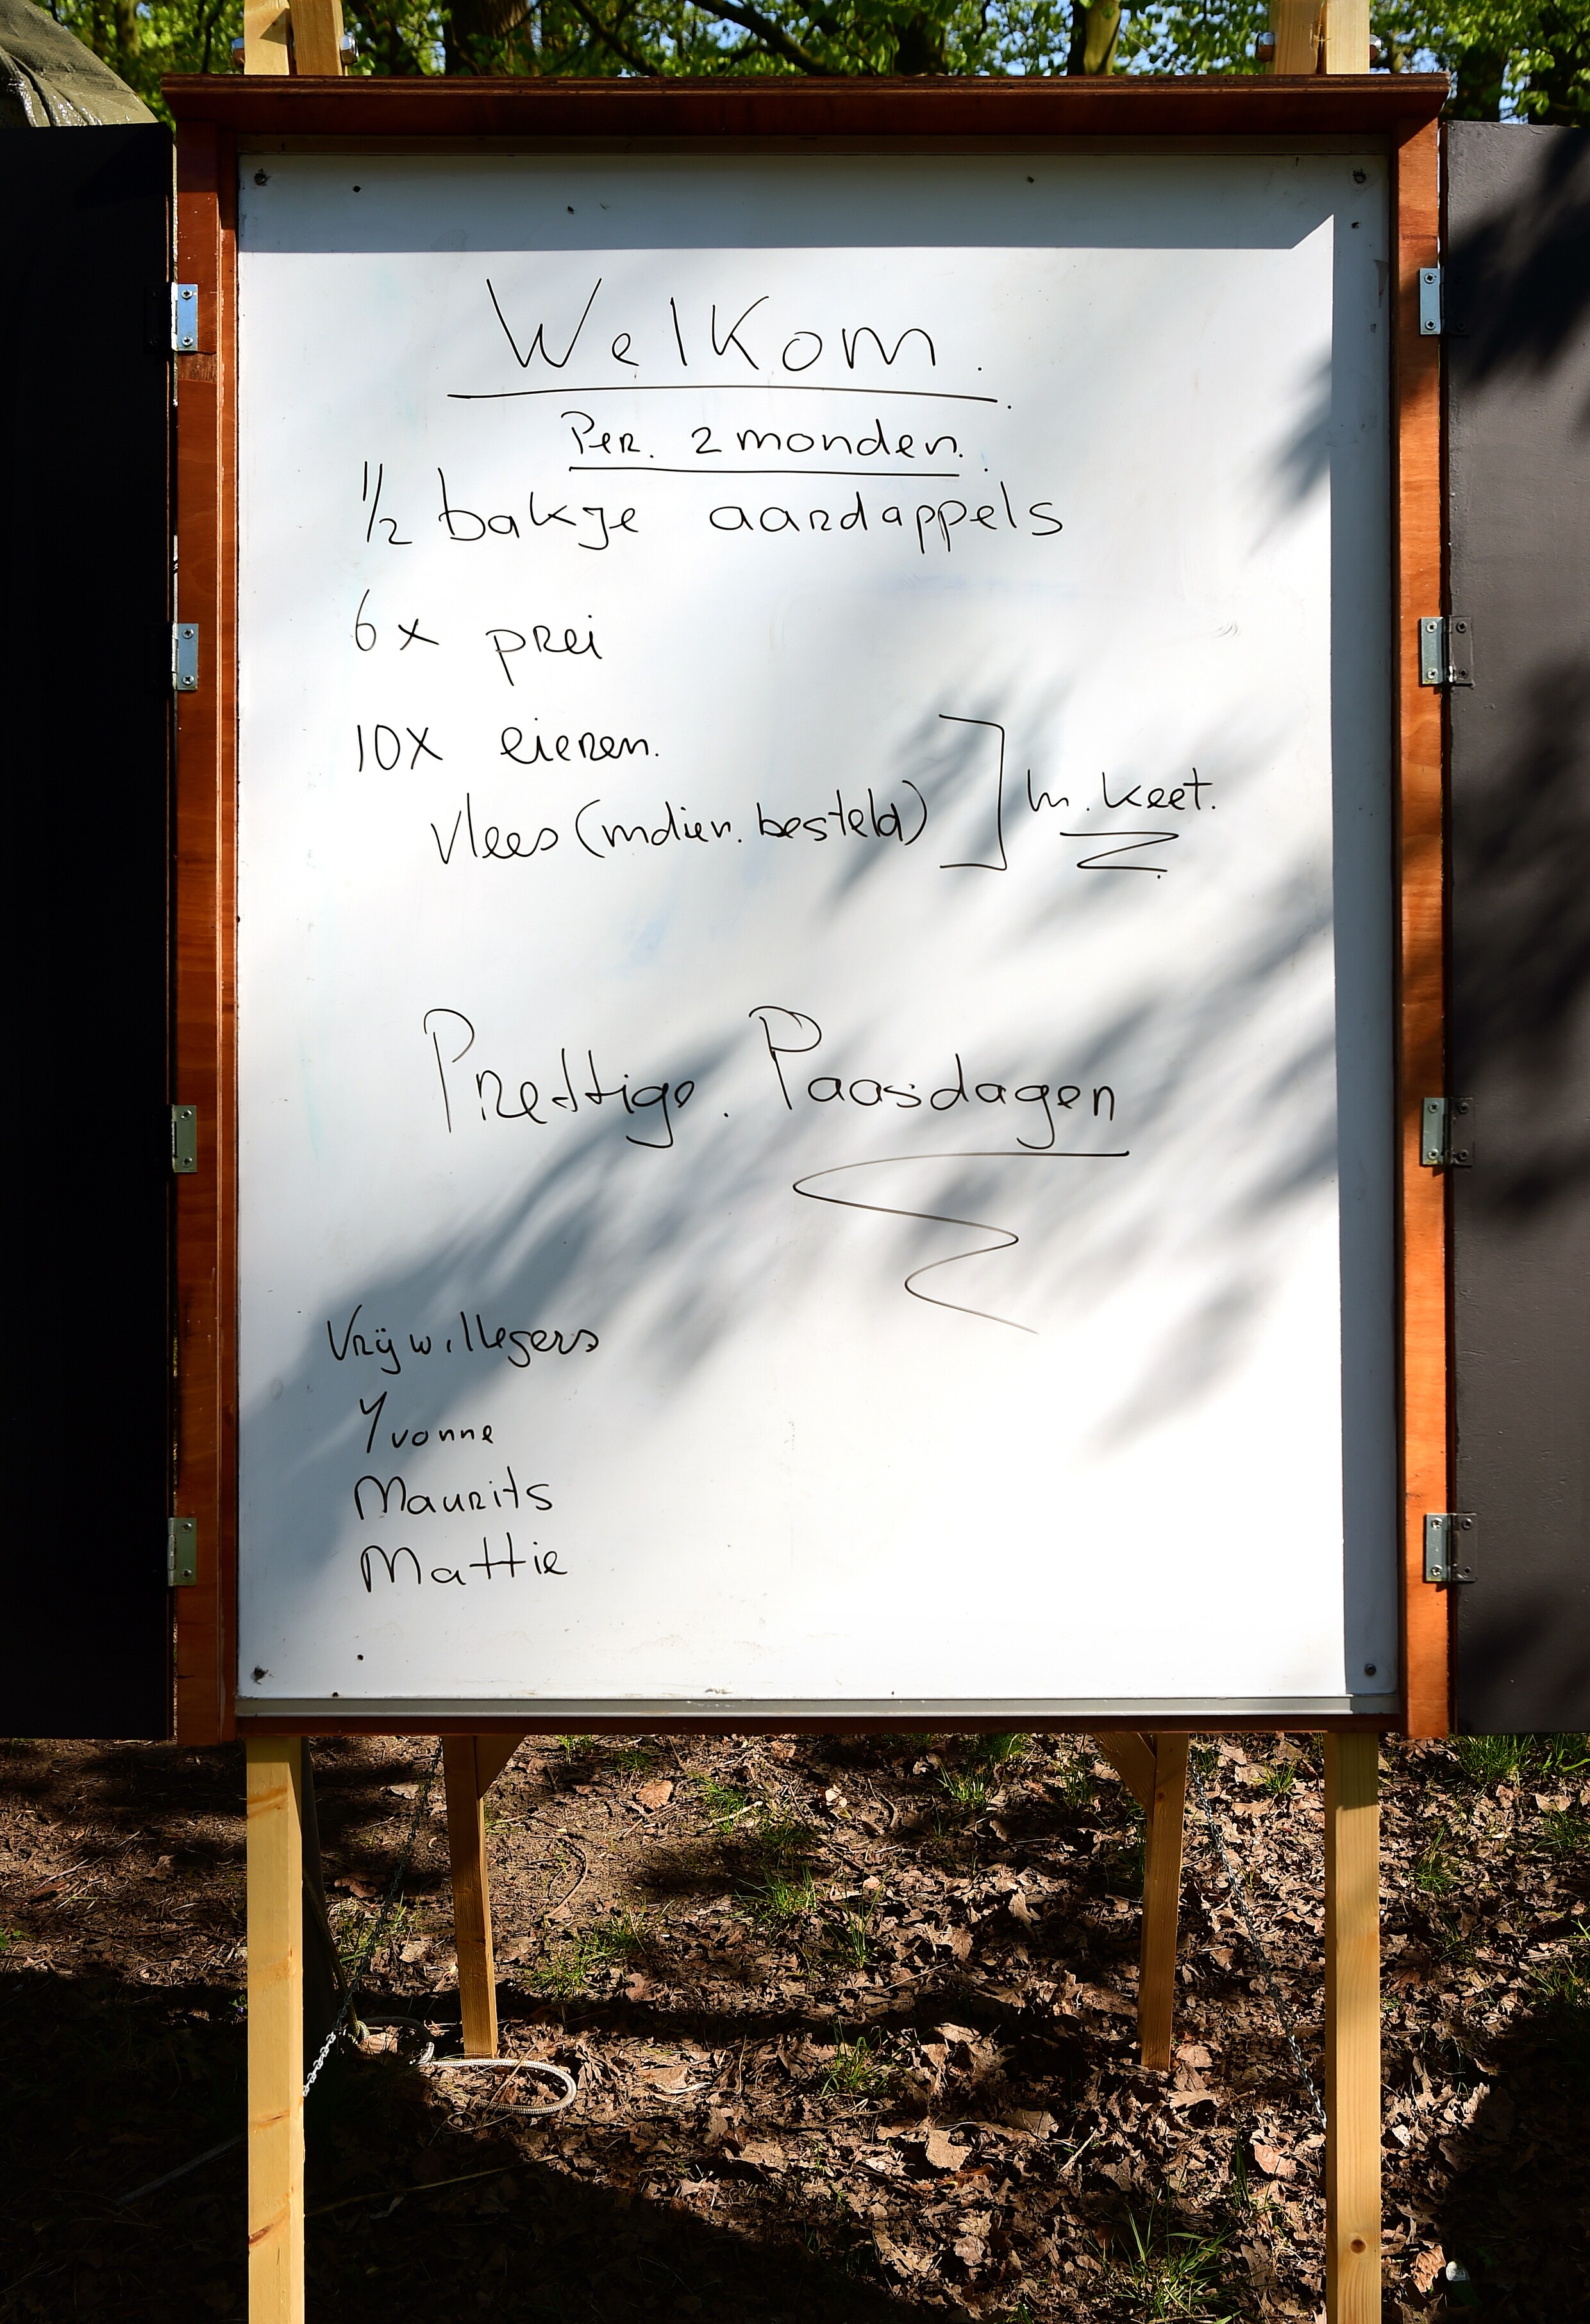 Welkom.
Per. 2 monden.
1/2 bakje aardappels
6x prei
10x eieren.
vlees (mdien. besteld)
In. keet.
Prettige. Paasdagen
Vrijwillegers
Yvonne
Maurits
Mattie